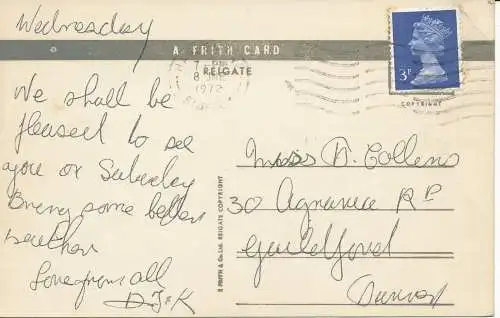 Wednesday
A FRITH CARD
REIGATE
1972
3P
COPYRIGHT
We shall be
pleased to see
you on Saturday
Bring some better
weather
Love from all
D J & K
F. FRITH & Co. Ltd. REIGATE COPYRIGHT
Miss N. Collens
30 Agraria Rd
Guildford
Surrey